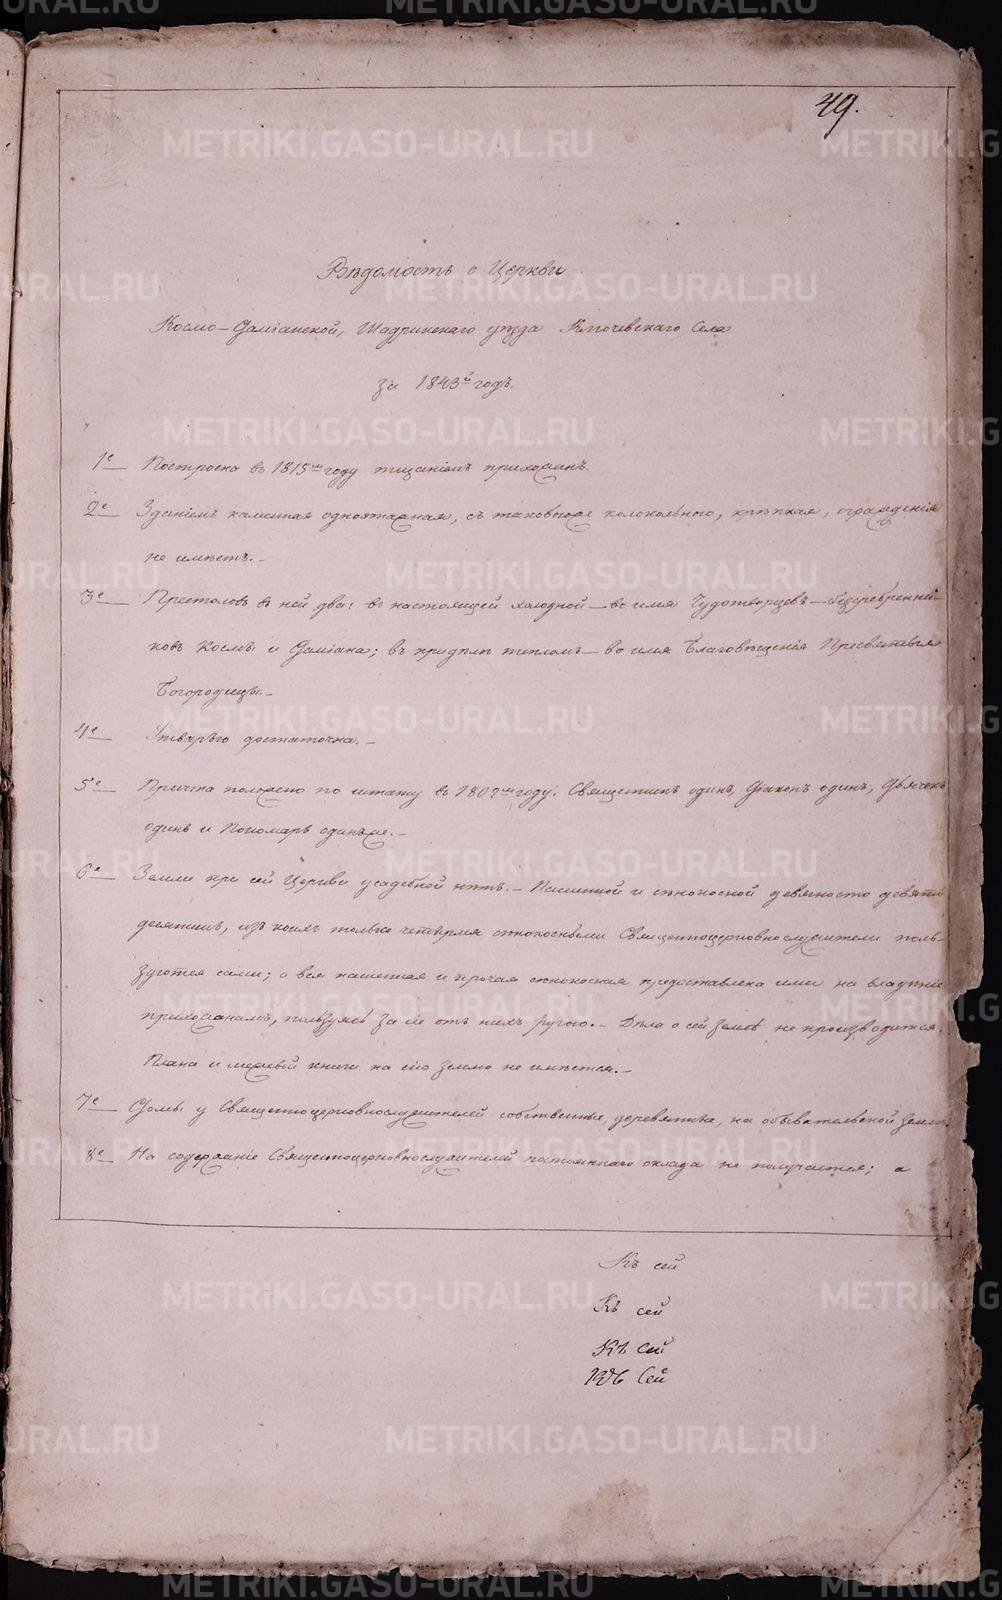 49.
Вѣдомость о Церкви
Космо-Даміанской, Шадринскаго уѣзда Ключевскаго Села
за 1843й годъ.
1е Построена въ 1815мъ году тщаніемъ прихожанъ.
2е Зданіемъ каменная одноэтажная, съ таковоюже колокольнею, крѣпкая, огражденія
не имѣетъ.
3е Престоловъ въ ней два: въ настоящей холодной – во имя Чудотворцевъ – безсребренни-
ковъ Космы и Даміана; въ придѣлѣ тепломъ – во имя Благовѣщенія Пресвятыя
Богородицы.
4е Утварью достаточна.
5е Причта положено по штату въ 1807мъ году: Священникъ одинъ, Діаконъ одинъ, Дьячекъ
одинъ и Пономарь одинъже.
6е Земли при сей Церкви усадебной нѣтъ. – Пашенной и сѣнокосной девяносто девять
десятинъ, изъ коихъ только четырмя сѣнокосными Священноцерковнослужители поль-
зуются сами; а вся пашенная и прочая сѣнокосная предоставлена ими на владѣніе
прихожанамъ, пользуясь за сіе отъ нихъ ругою. – Дѣла о сей землѣ не производится.
Плана и межевой книги на сію землю не имѣется.
7е Домы у Священноцерковнослужителей собственные, деревянные, на обывательской землѣ.
8е На содержаніе Священноцерковнослужителей постояннаго оклада не получается; а
Къ сей
Къ сей
Къ сей
Къ Сей
METRIKI.GASO-URAL.RU